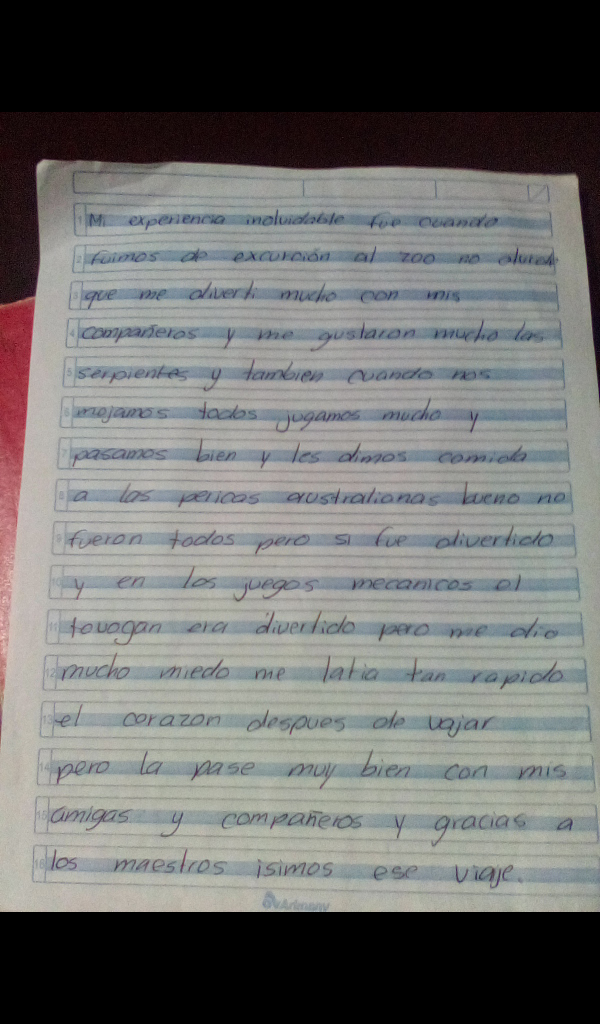 Mi experiencia inolvidable fue cuando
fuimos de excurción al zoo no
que me diverti mucho con mis
compañeros y me gustaron mucho las
serpientes y tambien cuando nos
mojamos todos jugamos mucho y
pasamos bien y les dimos comida
a las pericas australianas bueno no
fueron todos pero si fue divertido
y en los juegos mecanicos el
tovogan era divertido pero me dio
mucho miedo me latia tan rapido
el corazon despues de vajar
pero la pase muy bien con mis
amigas y compañeros y gracias a
los maestros isimos ese viaje.